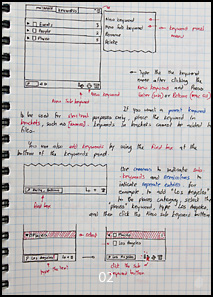 keywords
New keyword
New Sub keyword
Rename
Delete
keywords panel menu
Events
People
Places
New keyword
New Sub keyword
- Type the new keyword name after clicking the New keyword and Press Enter
If you want a parent keyword
to be used for structural purposes only, place the keyword in
brackets, such as [names]. Keywords in brackets cannot be added to
files.
You can also add keywords by using the find box at the
bottom of the keywords panel.
Use commas to indicate sub-
keywords and semicolons to
indicate separate entries. for
example, to add "Los Angeles"
to the places category, select the
"places" keyword, type "Los Angeles,"
and then click the New Sub keyword button
find box
Places
Los Angeles
select
Places
Los Angeles
type the text
click the Sub
keyword button
02